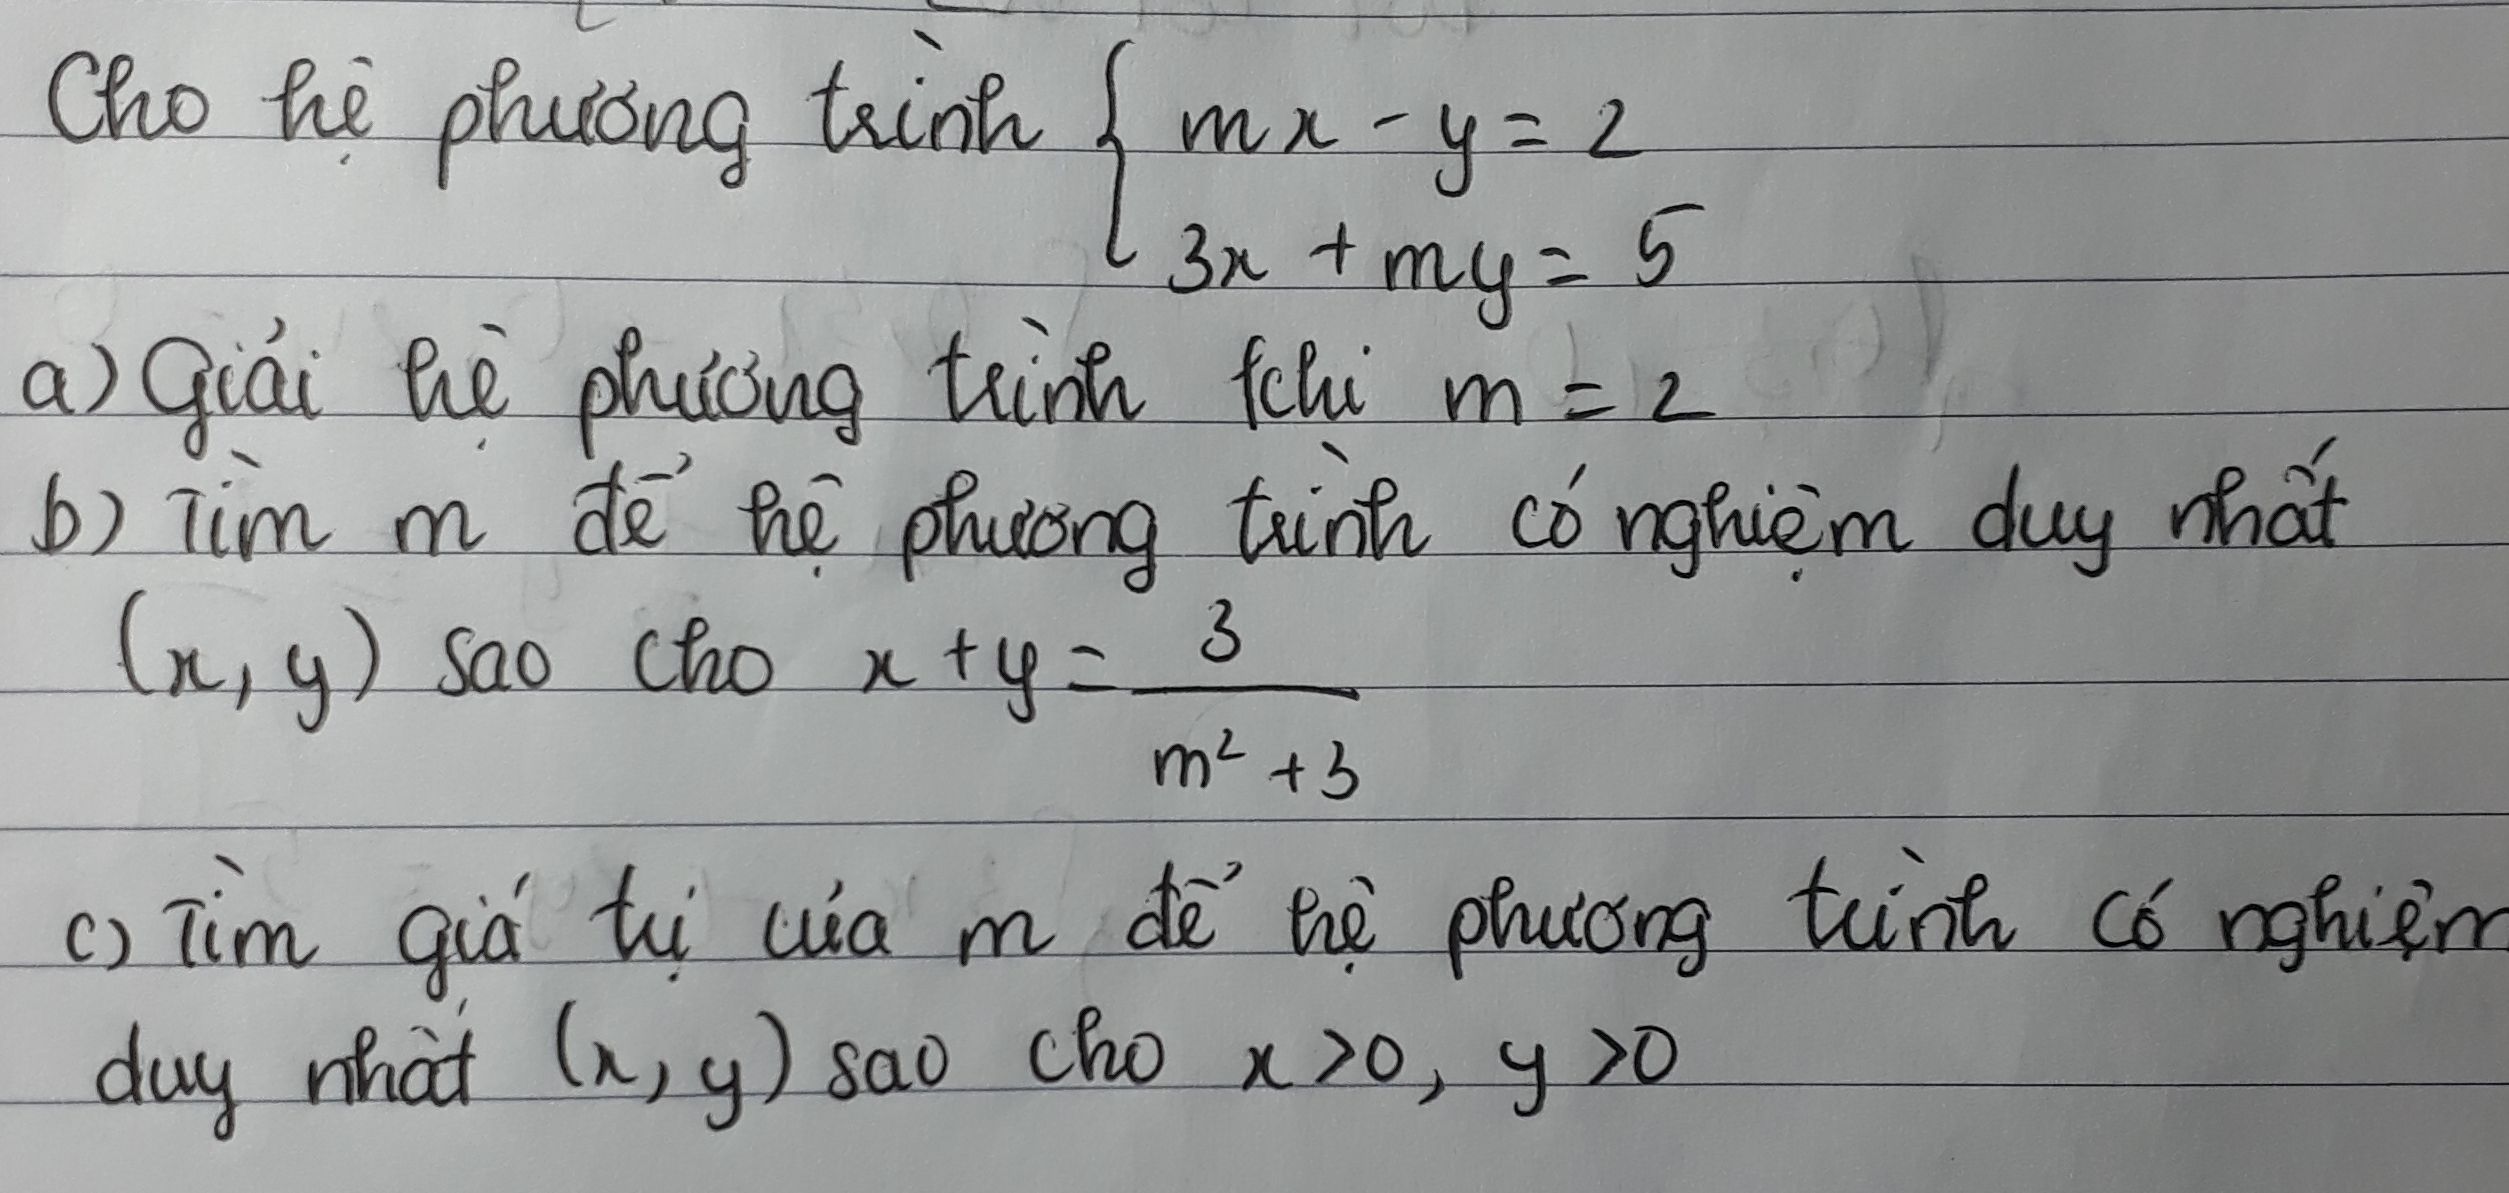 Cho hệ phương trình { mx - y = 2
3x + my = 5
a) Giải hệ phương trình khi m = 2
b) Tìm m để hệ phương trình có nghiệm duy nhất
(x, y) sao cho x + y = 3
m² + 3
c) Tìm giá trị của m để hệ phương trình có nghiệm
duy nhất (x, y) sao cho x > 0, y > 0